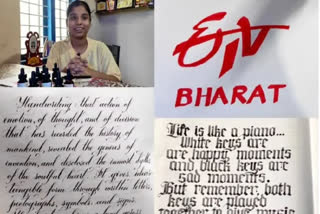 ETV
BHARAT
Handwriting that action of
emotion, of thought, and of decision
that has recorded the history of
mankind, revealed the genius of
invention, and disclosed the inmost depths
of the soulful heart. It gives ideas
tangible form through written letters,
pictographs, symbols, and signs.
Life is like a piano...
White keys are
are happy moments
and black keys are
sad moments.
But remember both
keys are played
together to